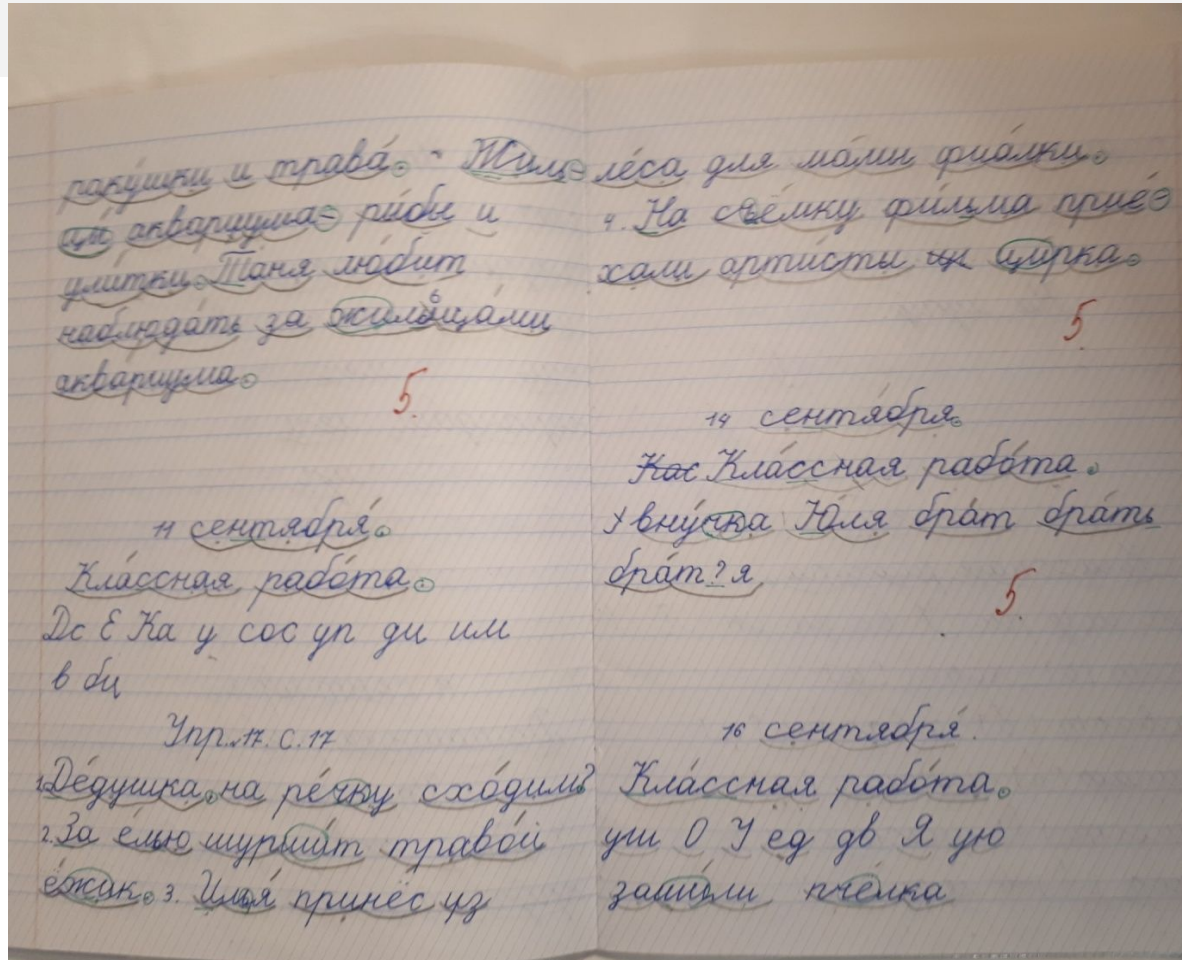 ракушки и трава. - Жиль-
цы аквариума - рыбы и
улитки. Таня любит
наблюдать за жильцами
аквариума.
5
11 сентября.
Классная работа.
Дс Е Ка у сос уп ди им
в бц
Упр. 17. с. 17
1. Дедушка, на речку сходим?
2. За елью шуршит травой
ёжик. 3. Илья принёс из
леса для мамы фиалки.
4. На съёмку фильма прие-
хали артисты из цирка.
5
14 сентября.
Кас Классная работа.
У внучка Юля брат брать
брат?я
5
16 сентября.
Классная работа.
уш О У ед дв Я ую
зашили пчёлка